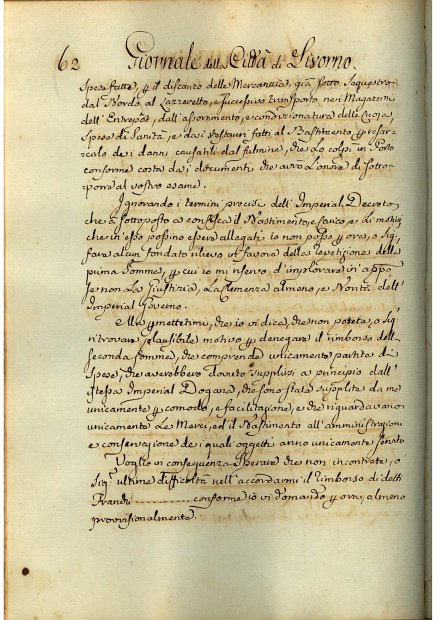 62 Giornale della Città di Livorno.
Spese fatte, p il discarto delle Mercanzie, già sotto sequestro
dal Bordo al Lazzeretto, e successivo transporto nei Magazzini
dell' Entrepot, dall' assortimento, e condizionatura delle Cuoja,
spese di Sanità, e dai restauri fatti al Bastimento p
dei danni causatili dal fulmine, che lo colpì in Porto
conforme costa dai documenti, che avrò l'onore di sotto=
porre al vostro esame.
Ignorando i termini precisi dell' Imperial Decreto
che à sottoposto a confisca il Bastimento, e carico, e li motivi
che in esso possino essere allegati io non posso p ora, o Sig.
fare alcun fondato rilievo in favore della repetizione della
prima somma, p cui io mi riservo d'implorare in appo
se non la Giustizia, la Clemenza almeno, e Bontà dell'
Imperial Governo.
Ma permettetimi, che io vi dica, che non potete, o Sig.
ritrovare plausibile motivo p denegare il rimborso della
seconda somma, che comprende unicamente partite di
spese, che averebbero dovuto supplirsi a principio dall'
istessa Imperial Dogana, che sono state supplite da me
unicamente p comodo, e facilitazione, e che riguardavano
unicamente le Merci, ed il Bastimento all' amministrazione
e conservazione dei quali oggetti anno unicamente servito
Voglio in conseguenza sperare che non incontrerete, o
Sig.e ultime difficoltà nell' accordarmi il rimborso di detti
Franchi ............ conforme io vi domando p ora, almeno
provvisionalmente.